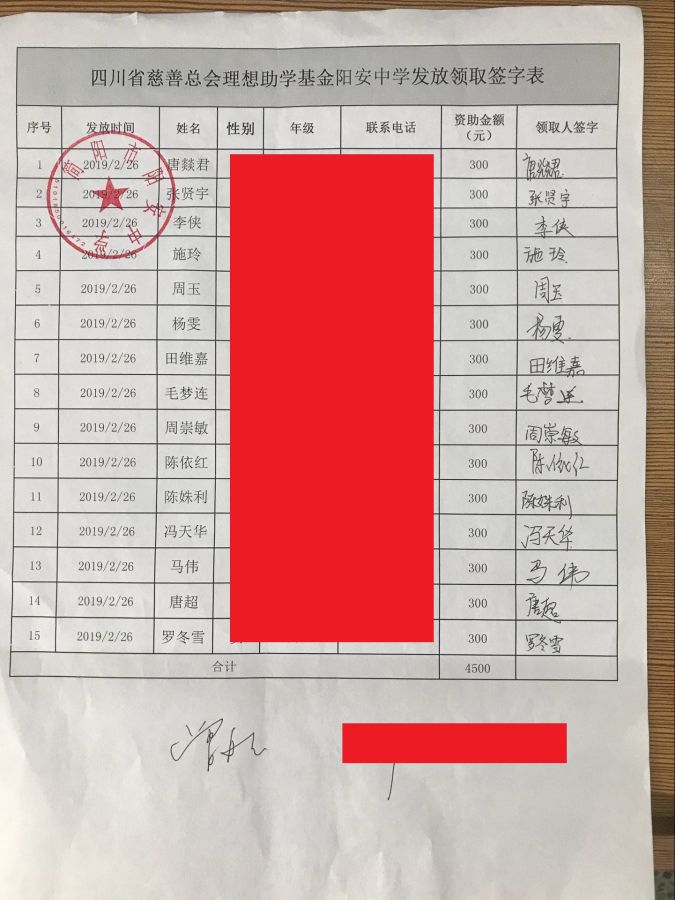 四川省慈善总会理想助学基金阳安中学发放领取签字表
序号 发放时间 姓名 性别 年级 联系电话 资助金额（元） 领取人签字
1 2019/2/26 唐燚君 300 唐燚君
2 2019/2/26 张贤宇 300 张贤宇
3 2019/2/26 李侠 300 李侠
4 2019/2/26 施玲 300 施玲
5 2019/2/26 周玉 300 周玉
6 2019/2/26 杨雯 300 杨雯
7 2019/2/26 田维嘉 300 田维嘉
8 2019/2/26 毛梦连 300 毛梦连
9 2019/2/26 周崇敏 300 周崇敏
10 2019/2/26 陈依红 300 陈依红
11 2019/2/26 陈姝利 300 陈姝利
12 2019/2/26 冯天华 300 冯天华
13 2019/2/26 马伟 300 马伟
14 2019/2/26 唐超 300 唐超
15 2019/2/26 罗冬雪 300 罗冬雪
合计 4500
简阳市阳安中学